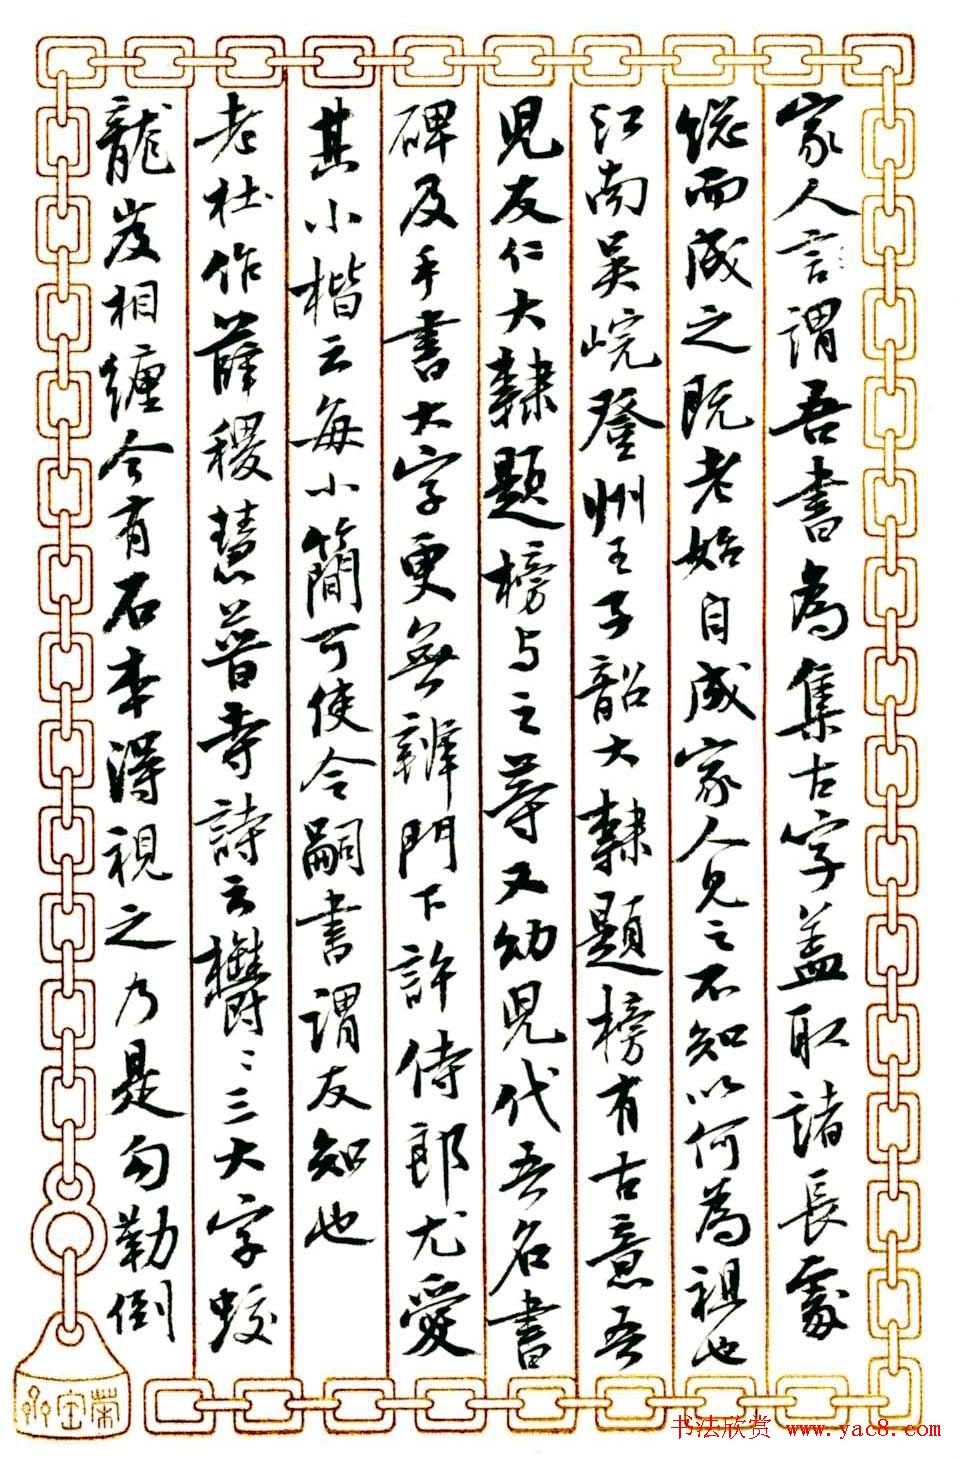 家人言謂吾書為集古字盖取諸長處
總而成之既老始自成家人見之不知以何為祖也
江南吳岏登州王子韶大隸題榜有古意吾
兒友仁大隸題榜与之等又幼兒代吾名書
碑及手書大字更無辨門下許侍郎尤愛
其小楷云每小簡可使令嗣書謂友知也
老杜作薛稷慧普寺詩云欝〻三大字蛟
龍岌相纏今有石本得視之乃是勾勒倒
荣宝斋
书法欣赏 www.yac8.com